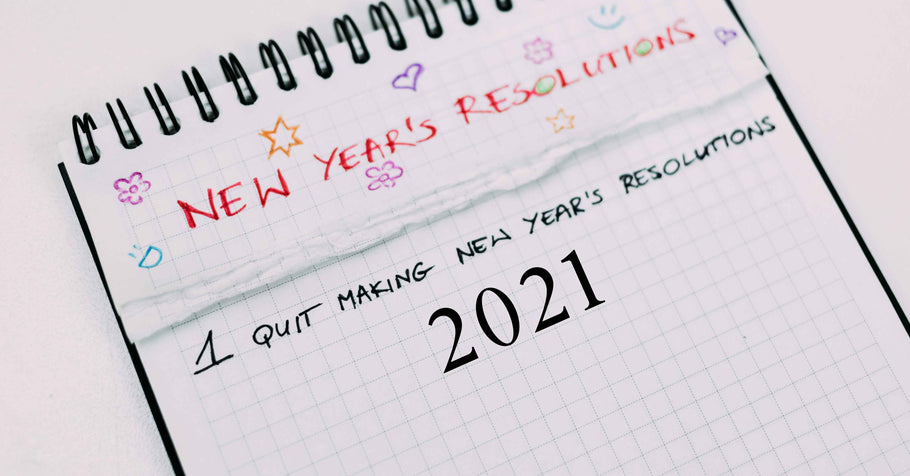 NEW YEAR'S RESOLUTIONS
1 QUIT MAKING NEW YEAR'S RESOLUTIONS
2021